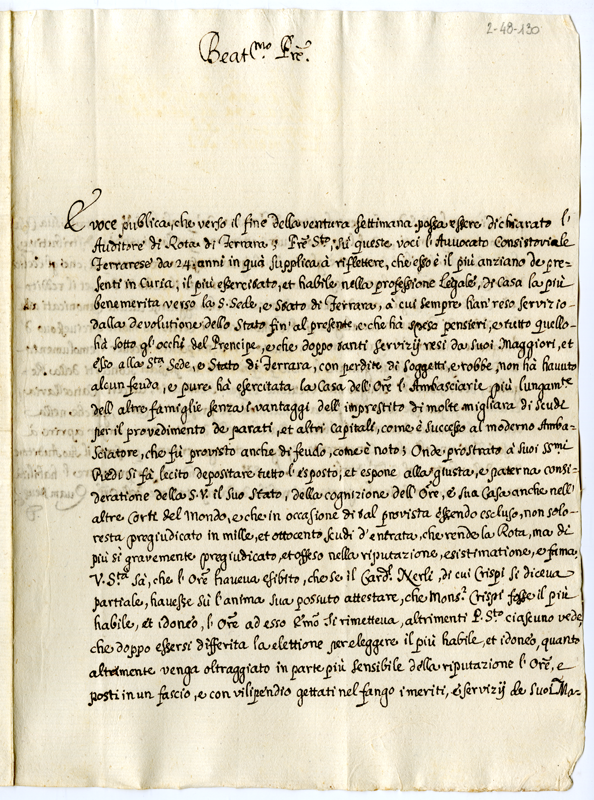 2-48-130
Beat.mo Pre.
È voce publica, che verso il fine della ventura settimana possa essere dichiarato l'
Auditore di Rota di Ferrara; Pre S.to, sù queste voci l'Avvocato Consistoriale
Ferrarese da 24 anni in quà supplica à riflettere, che esso è il più anziano de pre-
senti in Curia, il più essercitato, et habile nella professione Legale, di Casa la più
benemerita verso la S. Sede, e Stato di Ferrara, à cui sempre han reso servizio
dalla devolutione dello Stato fin'al presente, e che hà speso pensieri, e tutto quello
hà sotto gl'occhi del Prencipe, e che doppo tanti servizij resi da suoi Maggiori, et
esso alla S.ta Sede, e Stato di Ferrara, con perdite di soggetti, e robbe, non hà havuto
alcun feudo, e pure hà esercitata la Casa dell'Ore l'Ambasciarie più lungam.te
dell'altre famiglie senza i vantaggi dell'imprestito di molte migliara di scudi
per il provedimento de parati, et altri capitali, come è successo al moderno Amba-
sciatore, che fù provisto anche di feudo, come è noto; Onde prostrato à suoi S.mi
Piedi si fà lecito depositare tutto l'esposto, et espone alla giusta, e paterna consi-
deratione della S.V. il suo Stato, della cognizione dell'Ore, e sua Casa anche nell'
altre Corti del Mondo, e che in occasione di tal provista essendo escluso, non solo
resta pregiudicato in mille, et ottocento scudi d'entrata, che rende la Rota, ma di
più sì gravemente pregiudicato, et offeso nella riputazione, esistimatione, e fama.
V. S.tà sà, che l'Ore haveva esibito, che se il Card. Nerli, di cui Crispi si diceva
partiale, havesse sù l'anima sua possuto attestare, che Mons.r Crispi fosse il più
habile, et idoneo, l'Ore ad esso E.mo si rimetteva, altrimenti P. S.to ciascuno vede,
che doppo essersi differita la elettione per eleggere il più habile, et idoneo, quanto
altamente venga oltraggiato in parte più sensibile della riputazione l'Ore, e
posti in un fascio, e con vilipendio gettati nel fango i meriti, e servizij de suoi Ma-